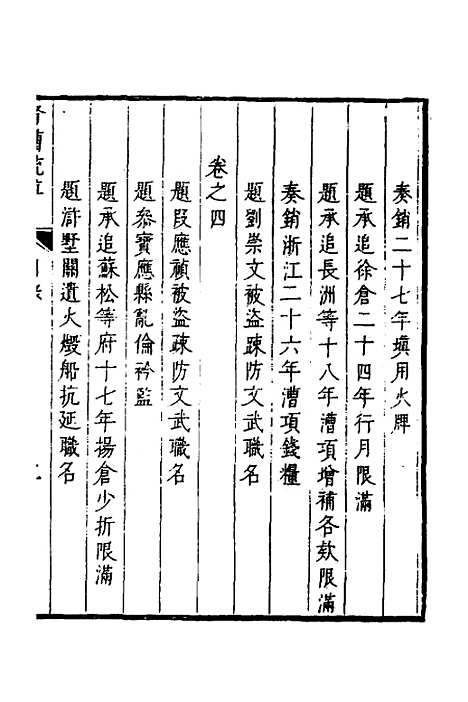 奏銷二十七年填用火牌
題承追徐倉二十四年行月限滿
題承追長洲等十八年漕項增補各欵限滿
奏銷浙江二十六年漕項錢糧
題劉崇文被盜踈防文武職名
卷之四
題段應禎被盜踈防文武職名
題叅寳應縣亂倫衿監
題承追蘇松等府十七年揚倉少折限滿
題滸墅關遺火燬船抗延職名